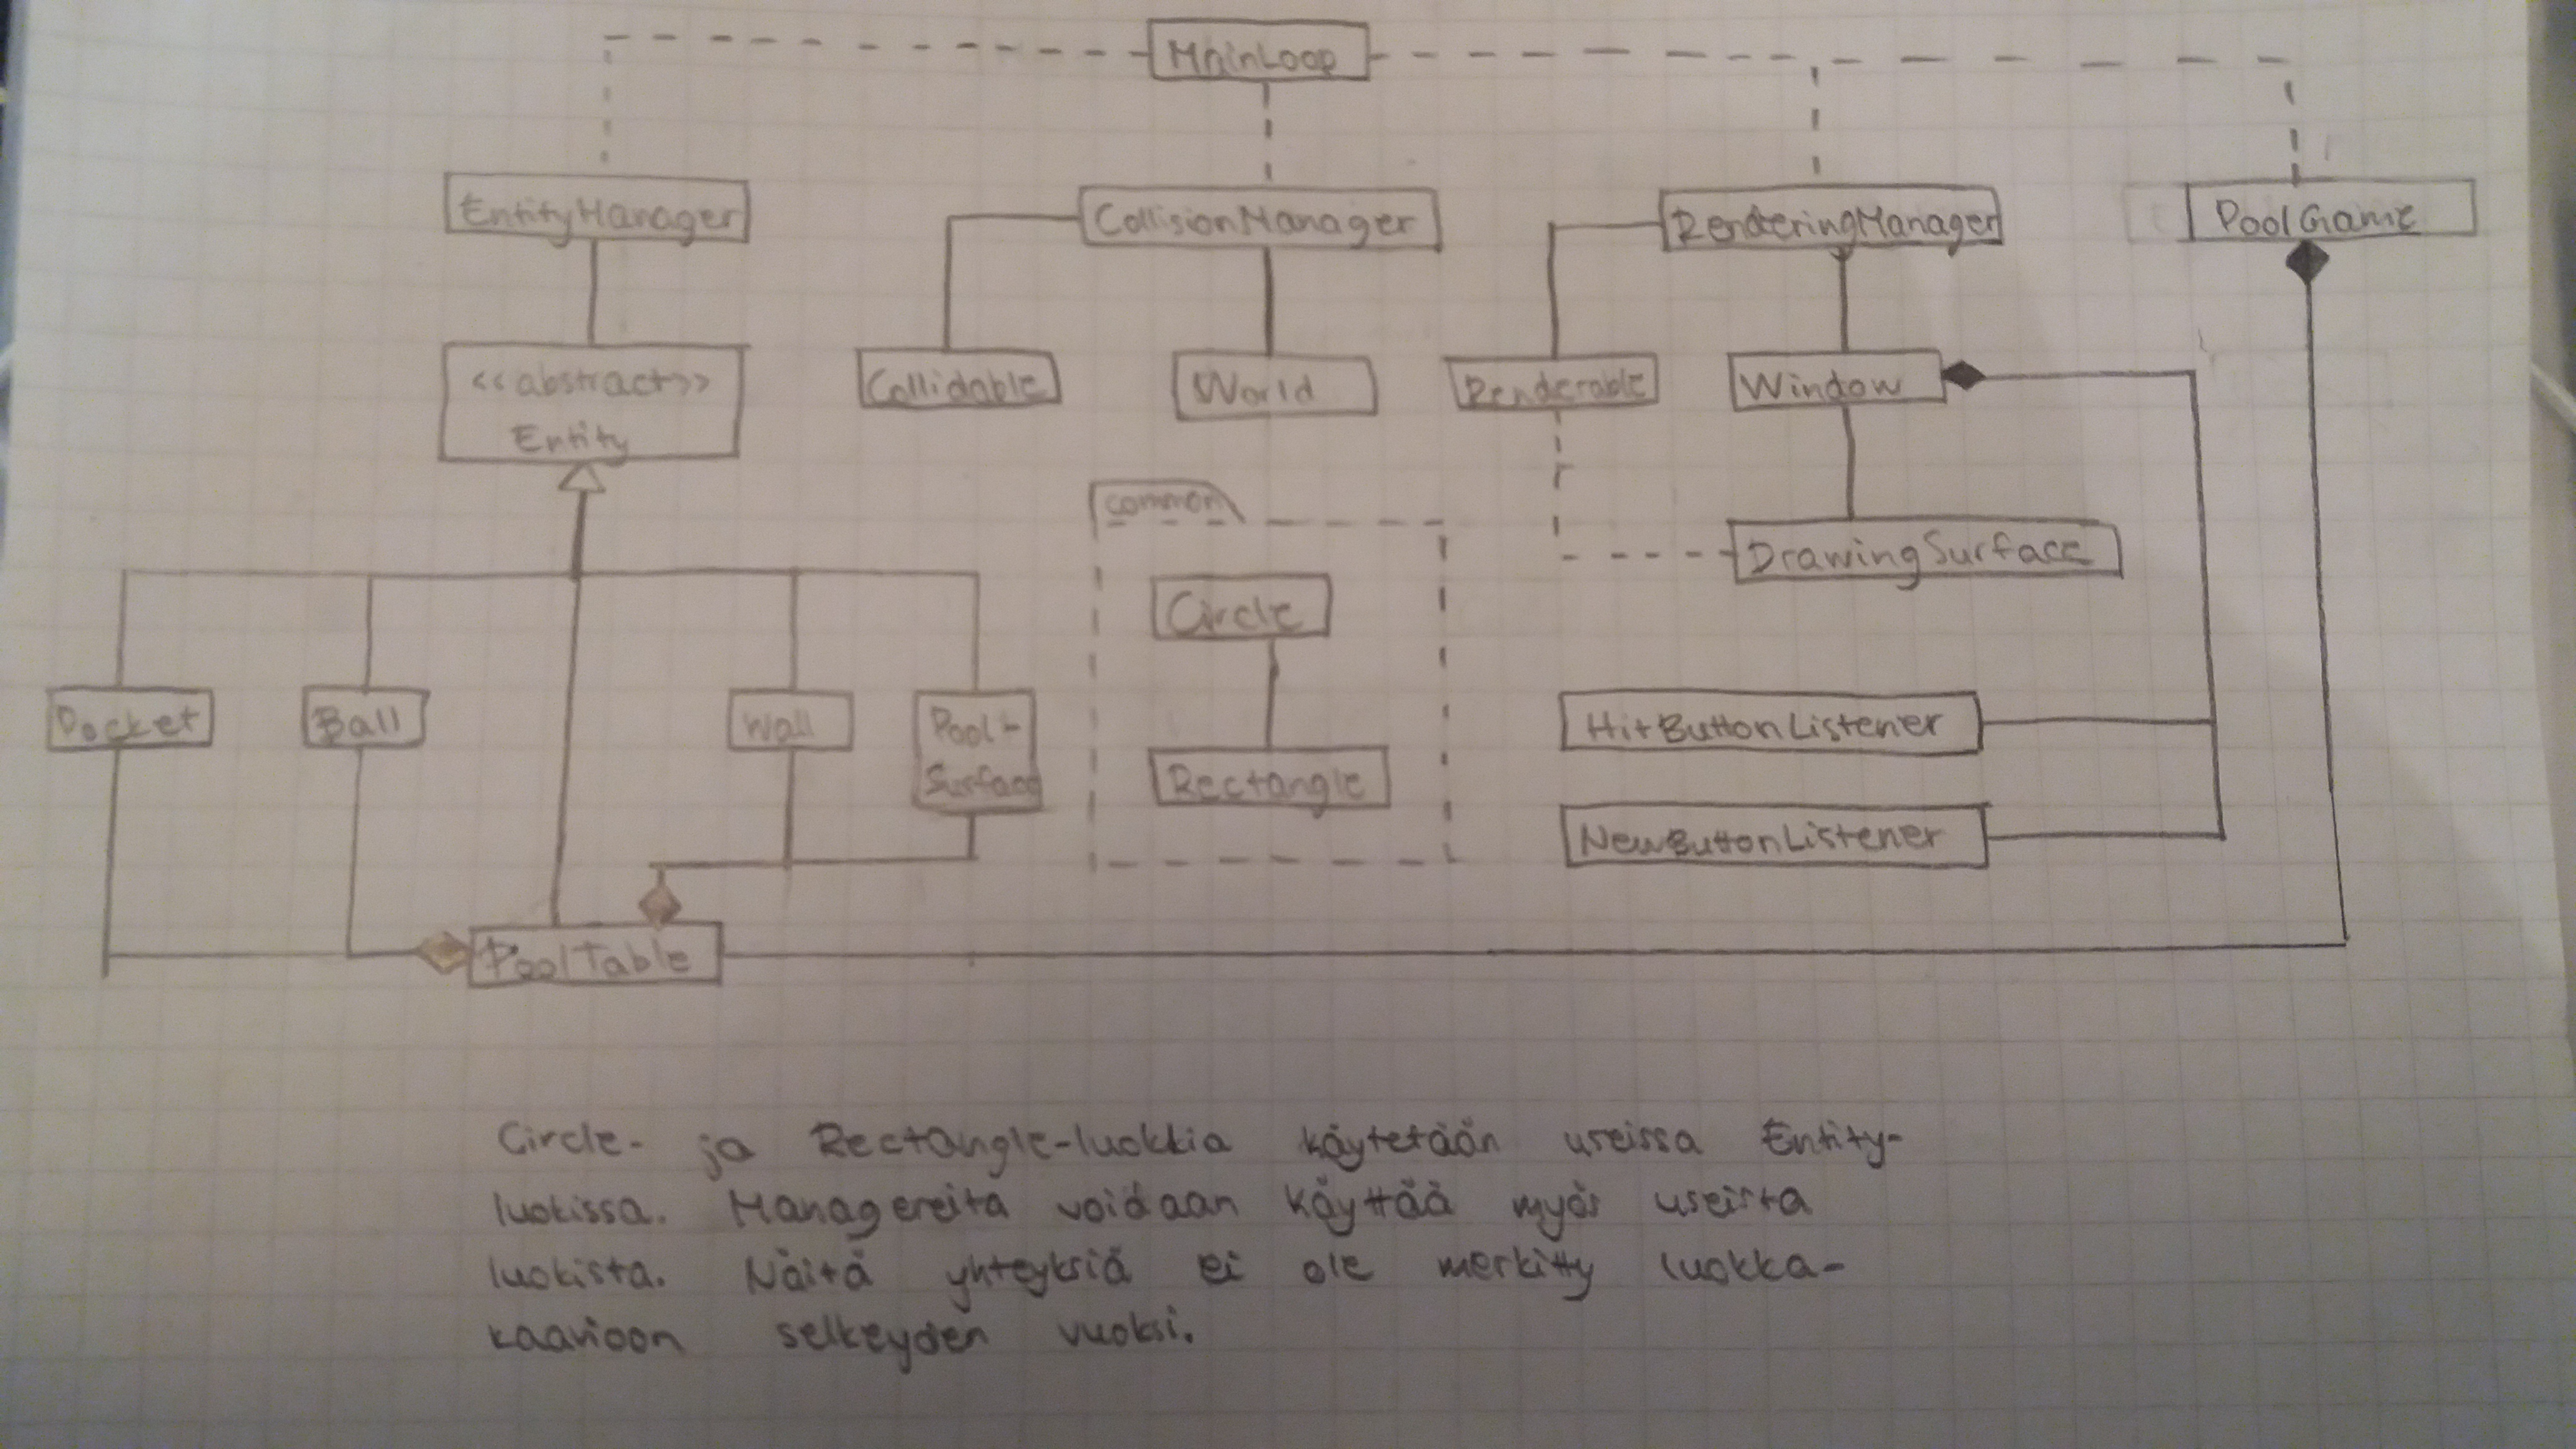 MainLoop
EntityManager
CollisionManager
RenderingManager
PoolGame
<<abstract>>
Entity
Collidable
World
Renderable
Window
common
DrawingSurface
Circle
Pocket
Ball
Wall
Pool-
Surface
HitButtonListener
Rectangle
NewButtonListener
PoolTable
Circle- ja Rectangle-luokkia käytetään useissa Entity-
luokissa. Managereita voidaan käyttää myös useista
luokista. Näitä yhteyksiä ei ole merkitty luokka-
kaavioon selkeyden vuoksi.